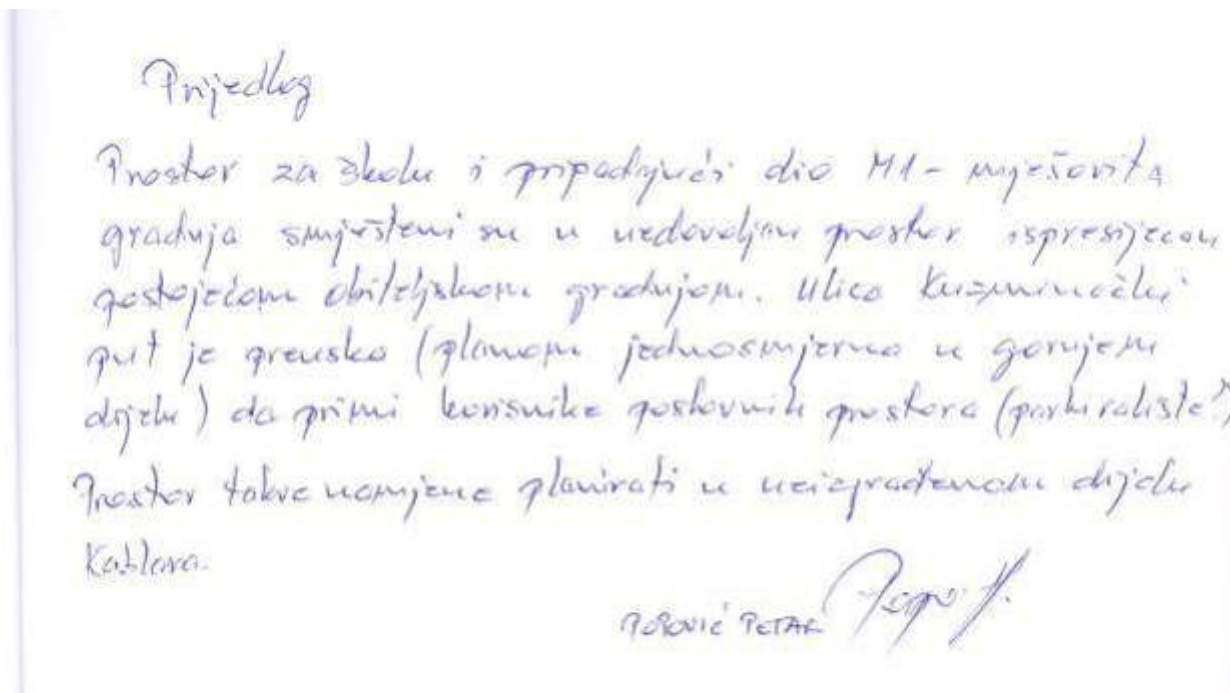 Prijedlog
Prostor za školu i pripadajući dio M1 - mješovita
gradnja smješteni su u nedovoljan prostor ispresijecan
postojećom obiteljskom gradnjom. Ulica Kuzminečki
put je preuska (planom jednosmjerna u gornjem
dijelu) da primi korisnike poslovnih prostora (parkiralište?)
Prostor takve namjene planirati u neizgrađenom dijelu
Kablara.
POPOVIĆ PETAR